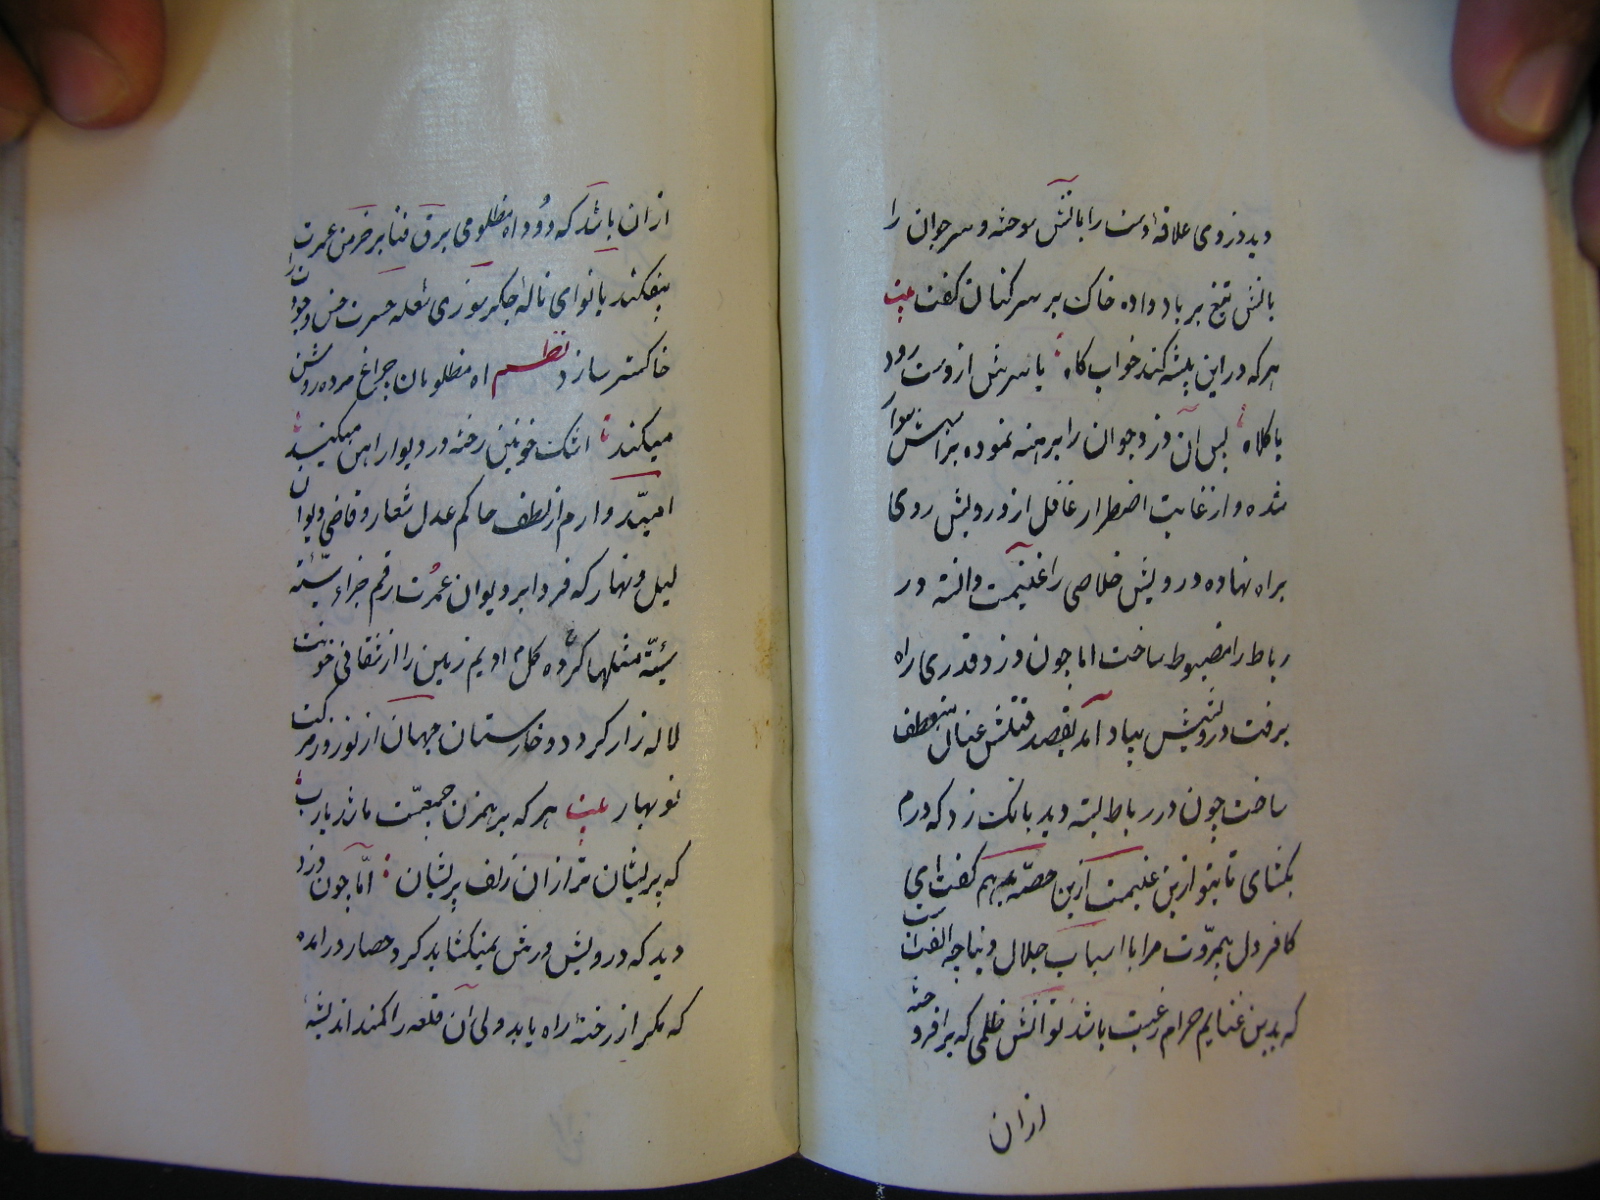 دید دزدی علاقه دست را بآتش سوخته و سر جوان را
بآتش تیغ بر باد داده خاک بر سر کنان گفت بیت
هر که در این بیشه کند خواب گاه یا سرش از دست رود
یا کلاه پس آن دزد جوان را برهنه نموده براسبش سوار
شده و از غایت اضطرار غافل از درویش روی
براه نهاده درویش خلاصی را غنیمت دانسته در
رباط را مضبوط ساخت اما چون دزد قدری راه
برفت درویش بیاد آمد بقصد قتلش عنان منعطف
ساخت چون در رباط بسته دید بانک زد که درم
بکشای تا بتو ازین غنیمت حصه بدهم گفت ای
کافر دل بیمروت مرا با اسباب جلال دنیا چه الفت
که بدین غنایم حرام رغبت باشد تو آتش ظلمی که برافروخته
ازان
ازان باشد که دود اه مظلومی برق فنا بر خرمن عمرت
بیفکند یا نوای ناله جکر سوزی شعله حسرت خس وجودت را
خاکستر سازد نظم اه مظلومان چراغ مرده روشن
میکند اشک خونین رخنه در دیوار اهن میکند
امید وارم از لطف حاکم عدل شعار و قاضی دیوان
لیل و نهار که فردا بر دیوان عمرت رقم جزاء سیئة
سیئة مثلها کرده کل ادیم زمین را از خونت
لاله زار کردد و خارستان جهان از نوروز مرکت
نو بهار بیت هر که بر همزن جمعیت ما شد یارب
که پریشان تر ازان زلف پریشان اما چون دزد
دید که درویش درش نمیکشاید کرد حصار در امده
که مکر از رخنه راه یابد ولی آن قلعه را کمند اندیشه